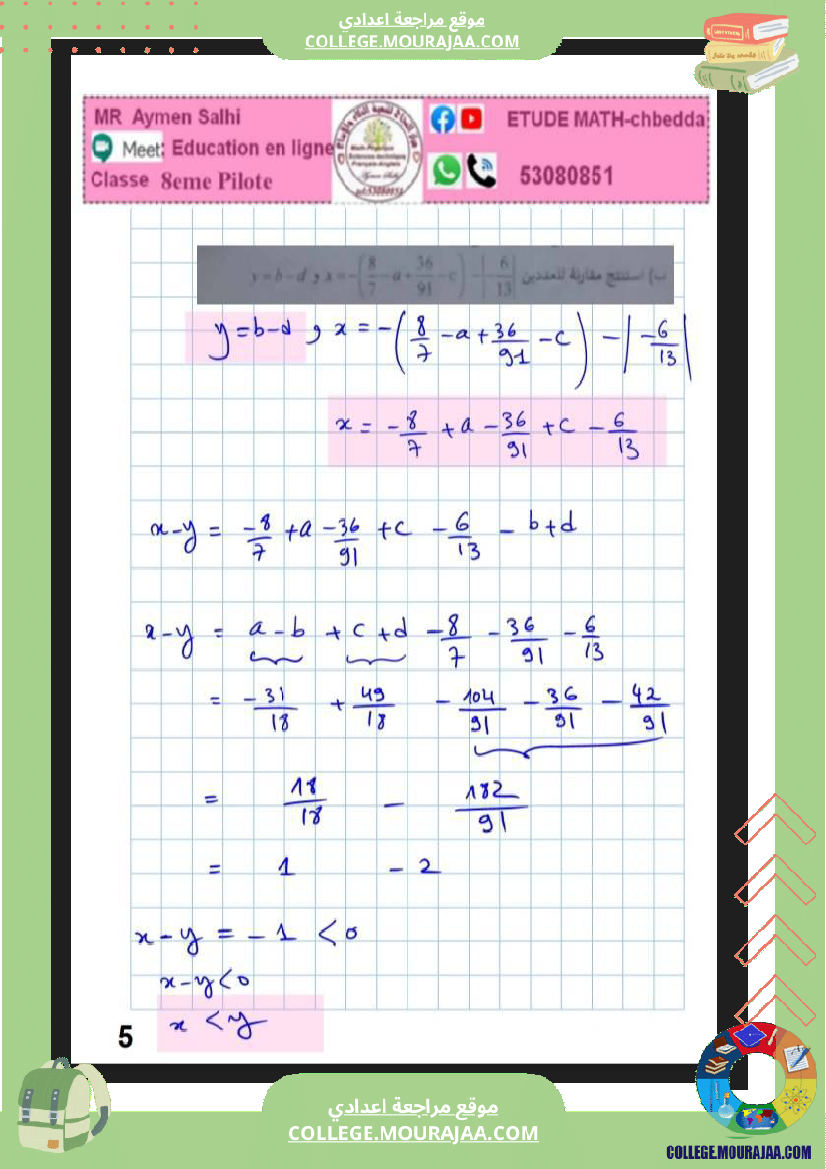 موقع مراجعة اعدادي
COLLEGE.MOURAJAA.COM
MR Aymen Salhi
Meet: Education en ligne
Classe 8eme Pilote
ETUDE MATH-chbedda
53080851
ب) استنتج مقارنة للعددين x = -(8/7 - a + 36/91 - c) - |-6/13| و y = b - d
y = b-d و x = -(8/7 - a + 36/91 - c) - |-6/13|
x = -8/7 + a - 36/91 + c - 6/13
x-y = -8/7 + a - 36/91 + c - 6/13 - b + d
x-y = a-b + c+d - 8/7 - 36/91 - 6/13
= -31/18 + 49/18 - 104/91 - 36/91 - 42/91
= 18/18 - 182/91
= 1 - 2
x-y = -1 < 0
x-y < 0
x < y
5
موقع مراجعة اعدادي
COLLEGE.MOURAJAA.COM
COLLEGE.MOURAJAA.COM